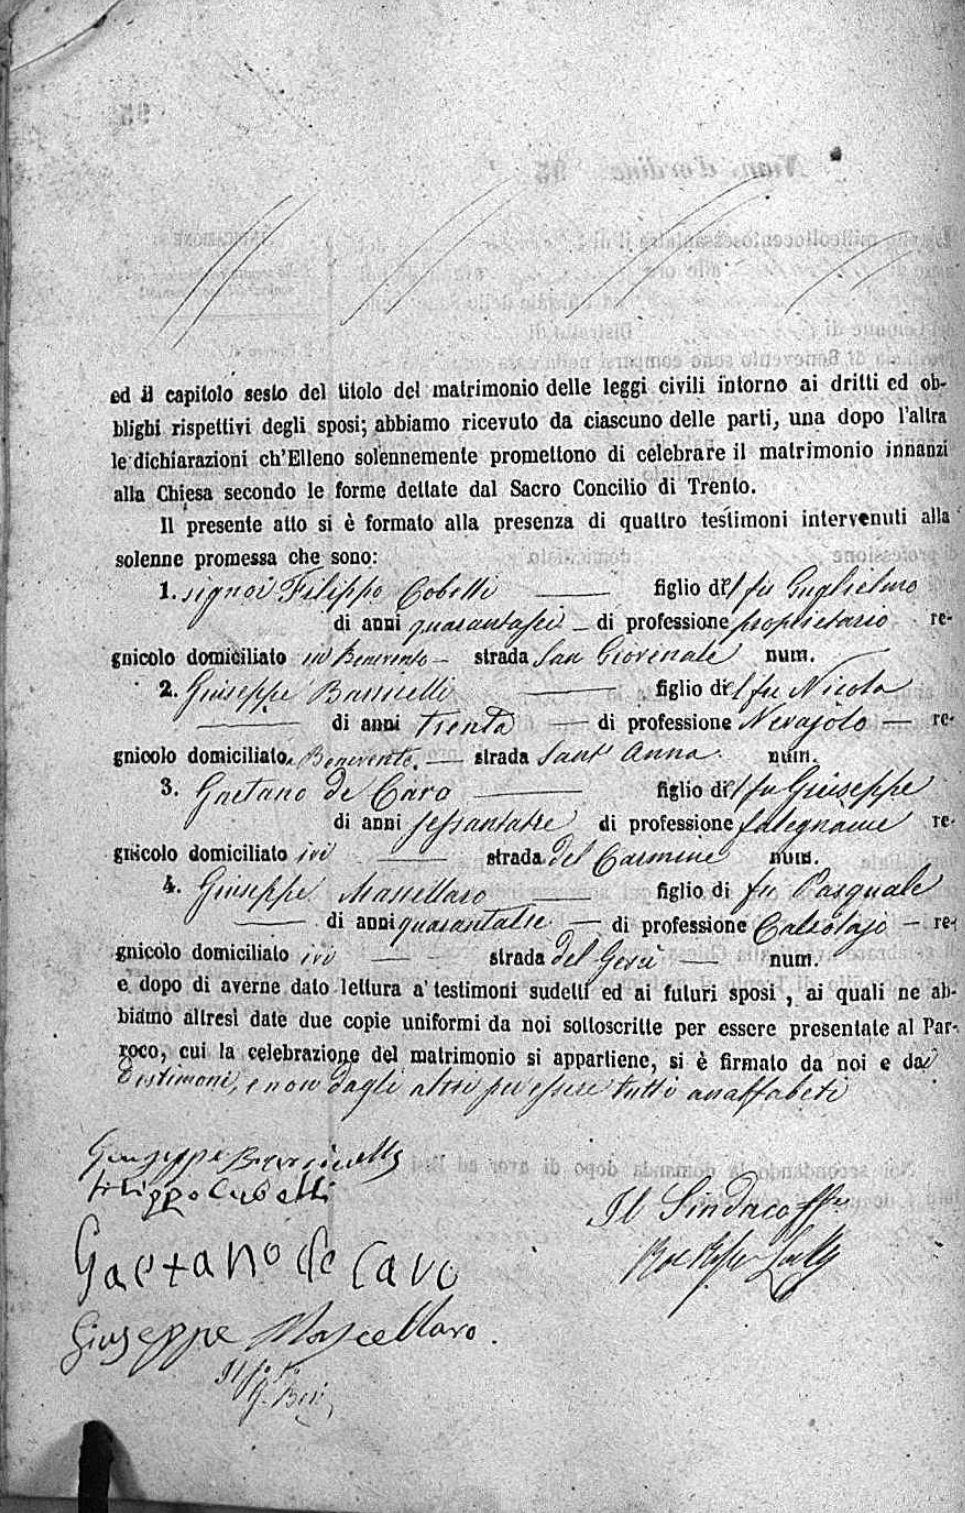 ed il capitolo sesto del titolo del matrimonio delle leggi civili intorno ai dritti ed ob-
blighi rispettivi degli sposi; abbiamo ricevuto da ciascuno delle parti, una dopo l'altra
le dichiarazioni ch'Elleno solennemente promettono di celebrare il matrimonio innanzi
alla Chiesa secondo le forme dettate dal Sacro Concilio di Trento.
Il presente atto si è formato alla presenza di quattro testimoni intervenuti alla
solenne promessa che sono:
1. signor Filippo Cobelli figlio del fu Guglielmo
di anni quarantasei di professione proprietario re-
gnicolo domiciliato in Benevento strada San Giovenale num.
2. Giuseppe figlio del fu Nicola
di anni trenta di professione Nevajolo re-
gnicolo domiciliato Benevento strada Sant' Anna num.
3. Gaetano de Caro figlio del fu Giuseppe
di anni sessantatre di professione falegname re-
gnicolo domiciliato ivi strada del Carmine num.
4. Giuseppe Masellaro figlio di fu Pasquale
di anni quarantatre di professione Calzolajo re-
gnicolo domiciliato ivi strada del Gesù num.
e dopo di averne dato lettura a' testimoni sudetti ed ai futuri sposi, ai quali ne ab-
biamo altresì date due copie uniformi da noi sottoscritte per essere presentate al Par-
roco, cui la celebrazione del matrimonio si appartiene, si è firmato da noi e dai
testimoni, e non dagli altri per essere tutti analfabeti
Giuseppe
Filippo Cubelli
Il Sindaco ff
Gaetano de Caro
Giuseppe Mascellaro.